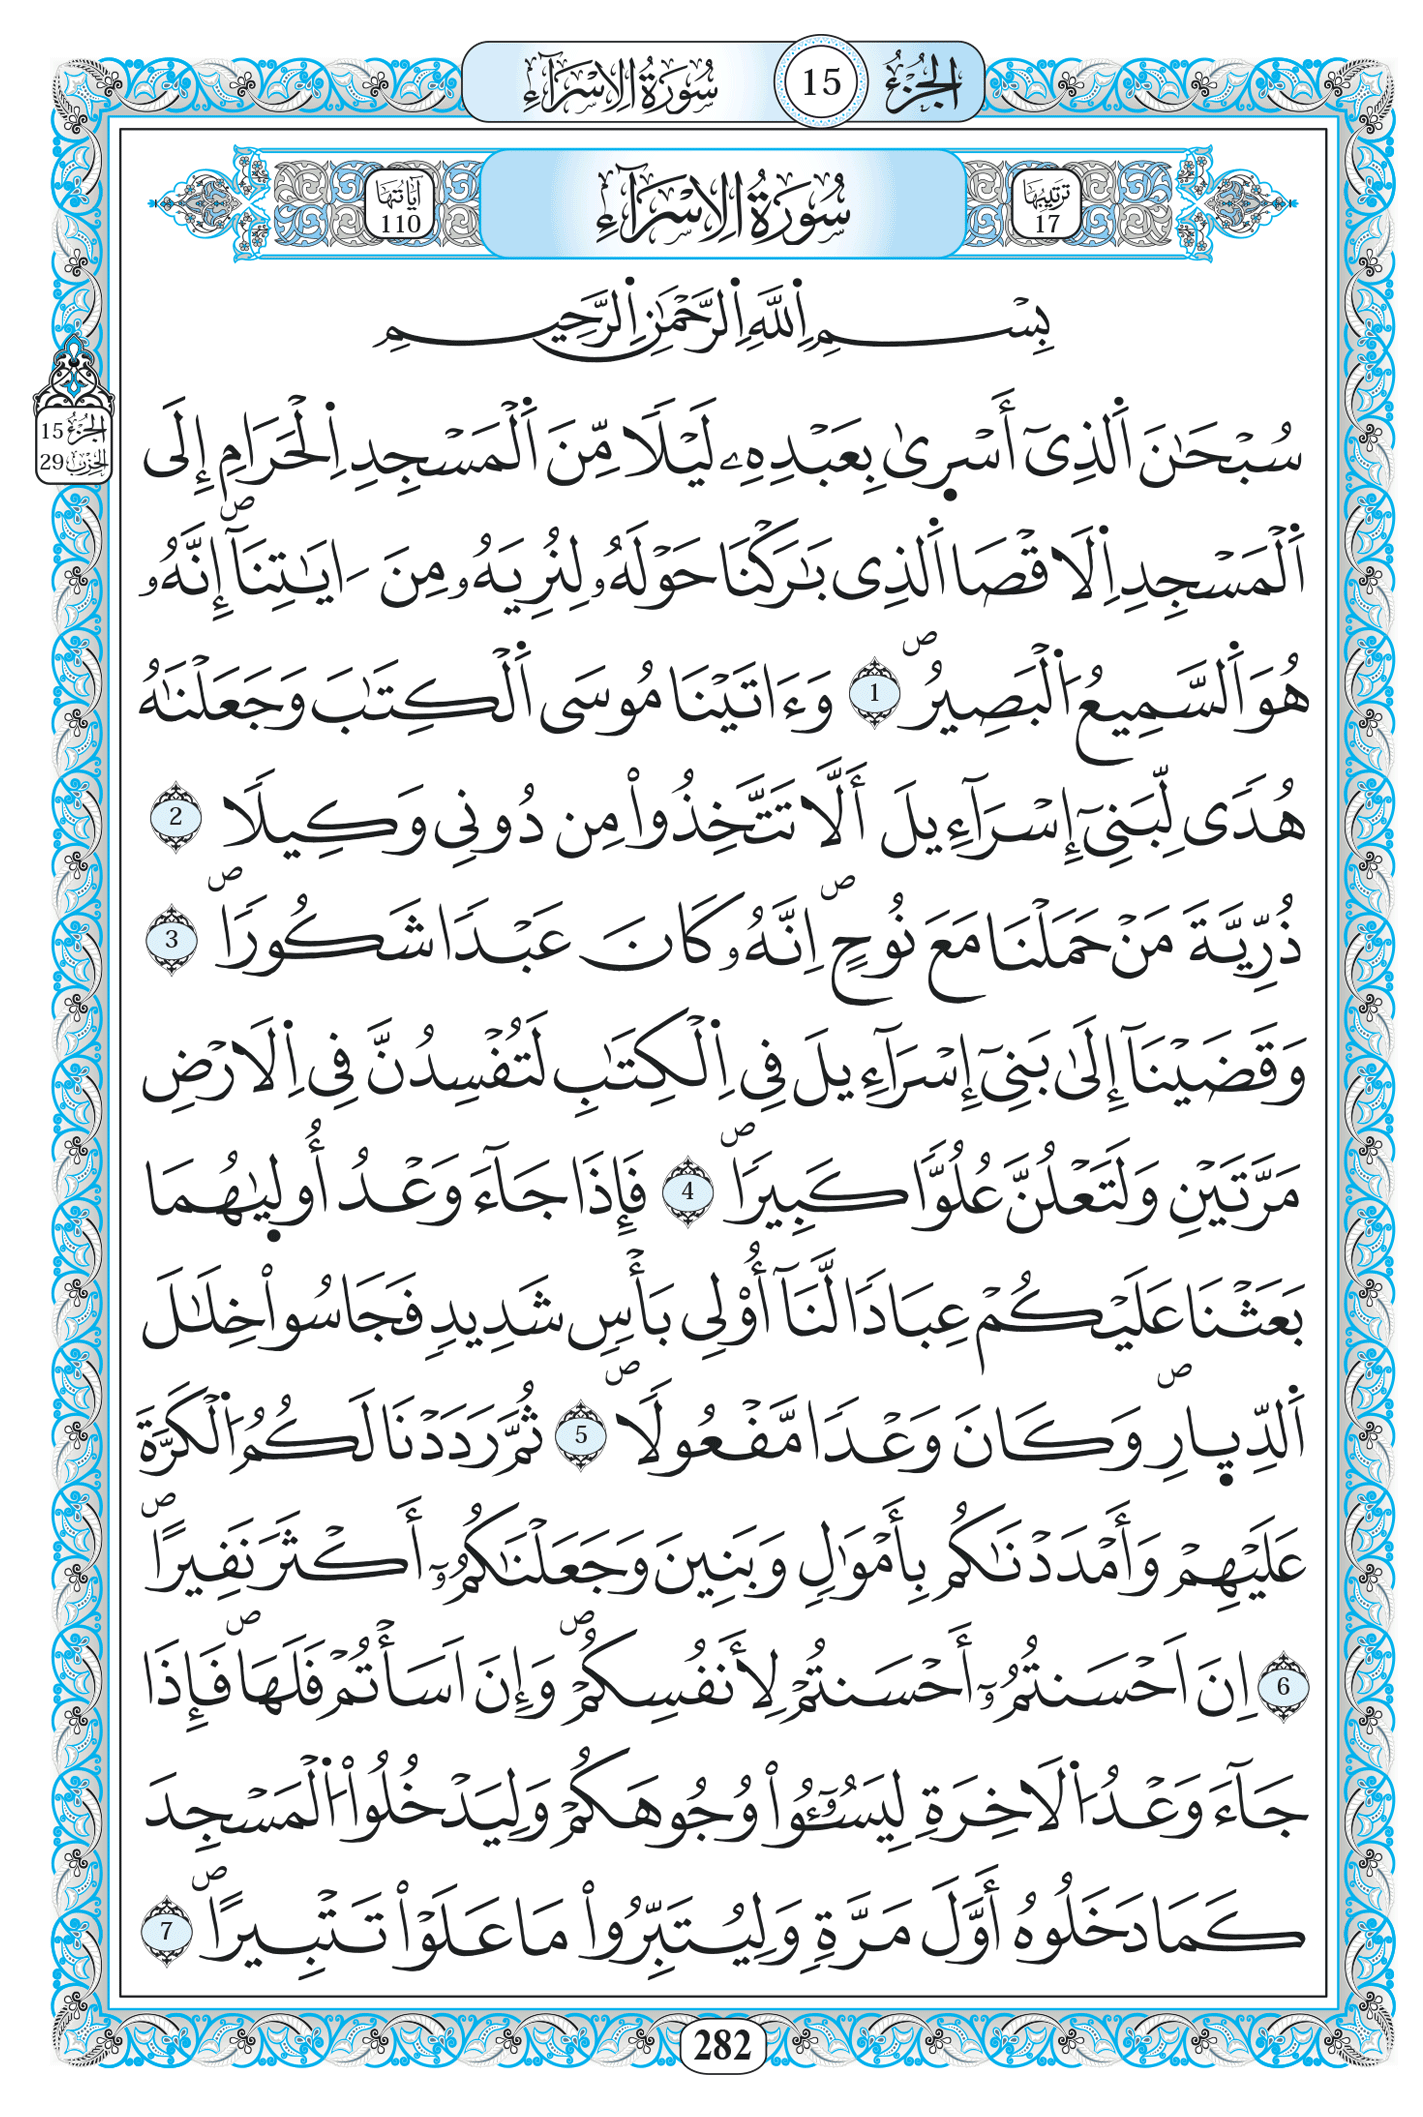 الجزء 15 سورة الإسراء
ترتيبها 17 سورة الإسراء آياتها 110
بِسْمِ اِ۬للَّهِ اِ۬لرَّحْمَٰنِ اِ۬لرَّحِيمِ
الجزء 15
الحزب 29
سُبْحَٰنَ اَ۬لذِےٓ أَسْر۪يٰ بِعَبْدِهِۦ لَيْلاٗ مِّنَ اَ۬لْمَسْجِدِ اِ۬لْحَرَامِ إِلَى
اَ۬لْمَسْجِدِ اِ۬لَاقْصَا اَ۬لذِے بَٰرَكْنَا حَوْلَهُۥ لِنُرِيَهُۥ مِنَ ـَايَٰتِنَآۖ إِنَّهُۥ
هُوَ اَ۬لسَّمِيعُ اُ۬لْبَصِيرُۖ 1 وَءَاتَيْنَا مُوسَى اَ۬لْكِتَٰبَ وَجَعَلْنَٰهُ
هُدىٗ لِّبَنِےٓ إِسْرَآءِيلَ أَلَّا تَتَّخِذُواْ مِن دُونِے وَكِيلاٗ 2
ذُرِّيَّةَ مَنْ حَمَلْنَا مَعَ نُوحٍۖ اِنَّهُۥ كَانَ عَبْداٗ شَكُوراٗۖ 3
وَقَضَيْنَآ إِلَىٰ بَنِےٓ إِسْرَآءِيلَ فِے اِ۬لْكِتَٰبِ لَتُفْسِدُنَّ فِے اِ۬لَارْضِ
مَرَّتَيْنِ وَلَتَعْلُنَّ عُلُوّاٗ كَبِيراٗۖ 4 فَإِذَا جَآءَ وَعْدُ أُول۪يٰهُمَا
بَعَثْنَا عَلَيْكُمْ عِبَاداٗ لَّنَآ أُوْلِے بَأْسٖ شَدِيدٖ فَجَاسُواْ خِلَٰلَ
اَ۬لدِّي۪ارِۖ وَكَانَ وَعْداٗ مَّفْعُولاٗۖ 5 ثُمَّ رَدَدْنَا لَكُمُ اُ۬لْكَرَّةَ
عَلَيْهِمْ وَأَمْدَدْنَٰكُم بِأَمْوَٰلٖ وَبَنِينَ وَجَعَلْنَٰكُمُۥٓ أَكْثَرَ نَفِيراًۖ
6 اِنَ اَحْسَنتُمُۥٓ أَحْسَنتُمْ لِأَنفُسِكُمْۖ وَإِنَ اَسَأْتُمْ فَلَهَاۖ فَإِذَا
جَآءَ وَعْدُ اُ۬لَاخِرَةِ لِيَسُـُٔواْ وُجُوهَكُمْ وَلِيَدْخُلُواْ اُ۬لْمَسْجِدَ
كَمَا دَخَلُوهُ أَوَّلَ مَرَّةٖ وَلِيُتَبِّرُواْ مَا عَلَوْاْ تَتْبِيراًۖ 7
282